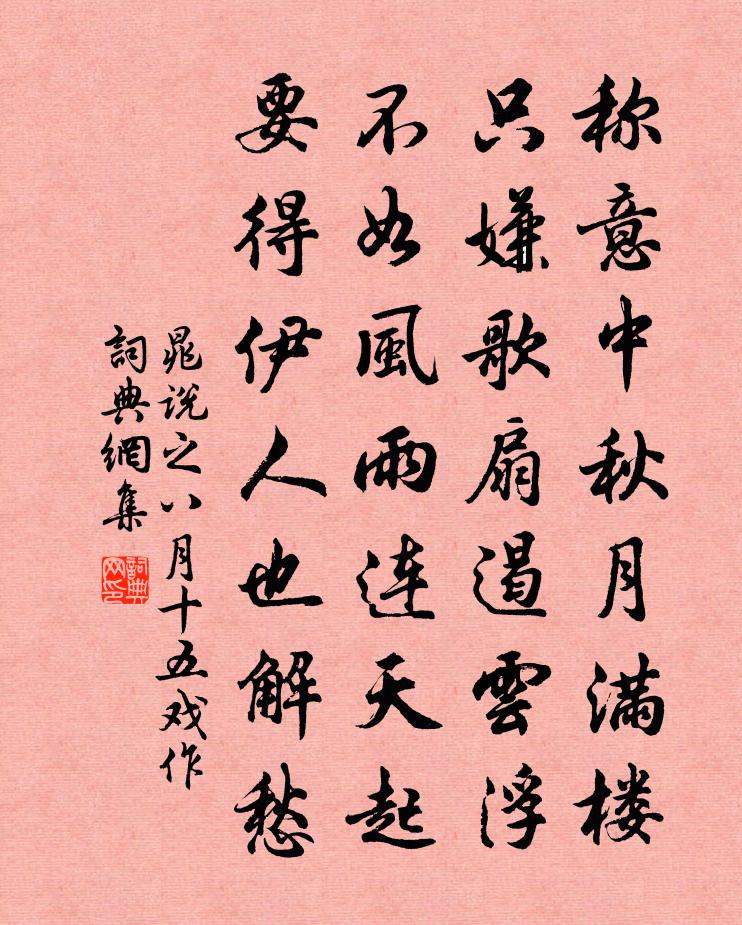 称意中秋月满楼
只嫌歌扇遏雲浮
不如風雨连天起
要得伊人也解愁
晁说之八月十五戏作
詞典網集
詞典网印